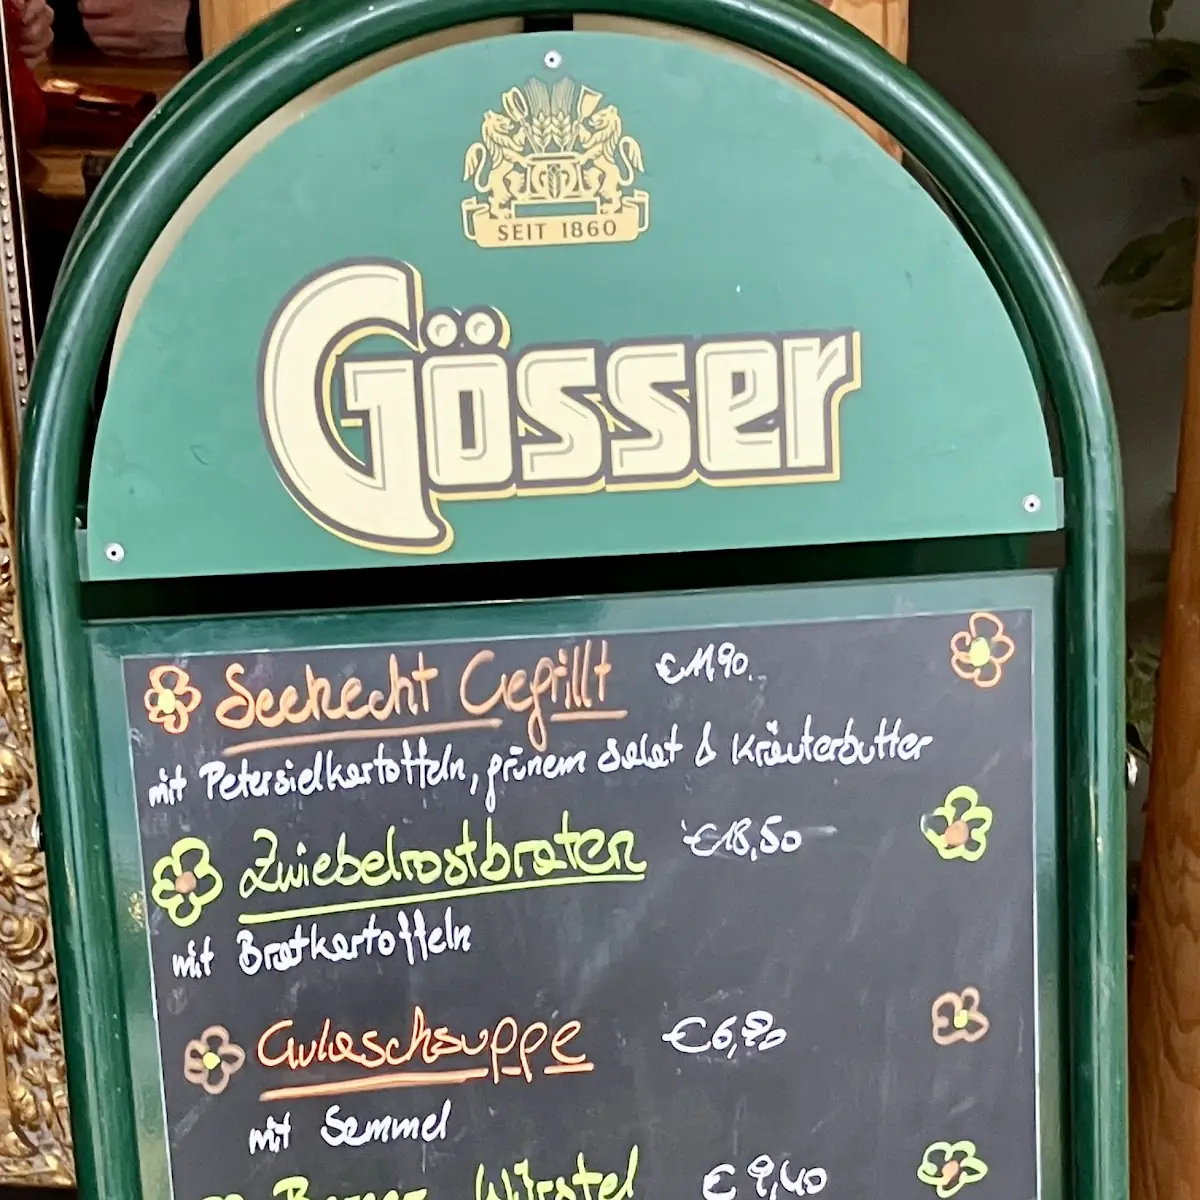 SEIT 1860
Gösser
Seehecht Gegrillt €11,90
mit Petersielkartoffeln, grünem Salat & Kräuterbutter
Zwiebelrostbraten €18,50
mit Bratkartoffeln
Gulaschsuppe €6,90
mit Semmel
Würstel € 9,40